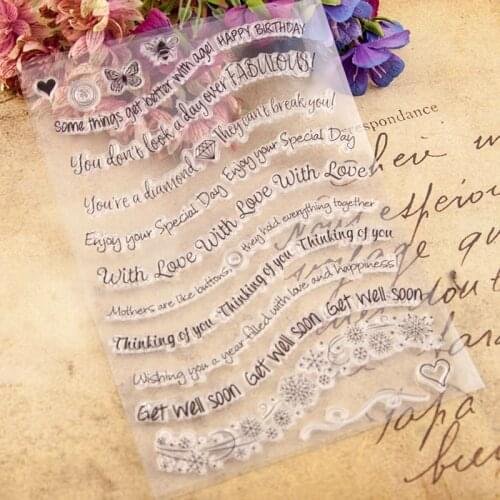 HAPPY BIRTHDAY
Some things get better with age!
You don't look a day over FABULOUS!
You're a diamond they can't break you!
Enjoy your Special Day Enjoy your Special Day
With Love With Love With Love
Mothers are like buttons, they hold everything together
Thinking of you Thinking of you Thinking of you
Wishing you a year filled with love and happiness!
Get well soon Get well soon Get well soon